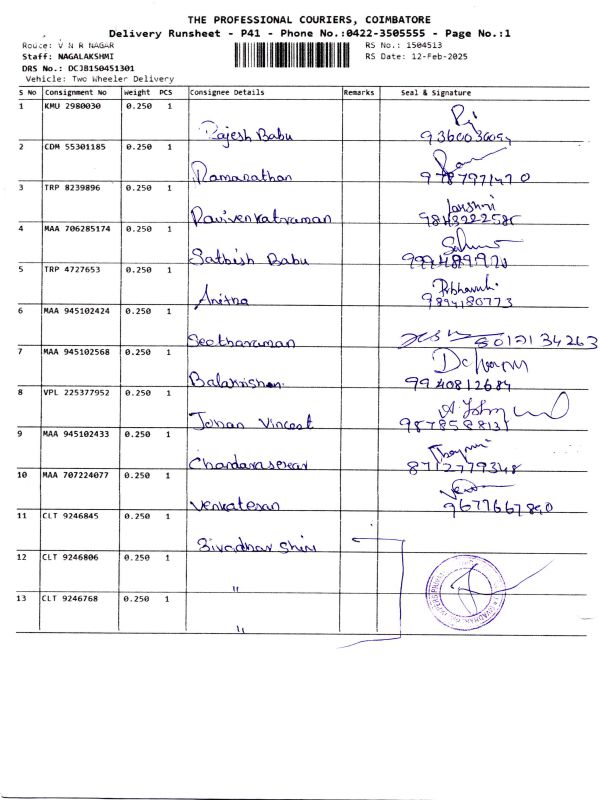 THE PROFESSIONAL COURIERS, COIMBATORE
Delivery Runsheet - P41 - Phone No.:0422-3505555 - Page No.:1
Route: V N R NAGAR RS No.: 1504513
Staff: NAGALAKSHMI RS Date: 12-Feb-2025
DRS No.: DCJB150451301
Vehicle: Two Wheeler Delivery
S No Consignment No Weight PCS Consignee Details Remarks Seal & Signature
1 KMU 2980030 0.250 1
Rajesh Babu
2 CDM 55301185 0.250 1
Ramanathan 9787971470
3 TRP 8239896 0.250 1
Ravivenkatraman
4 MAA 706285174 0.250 1
Sathish Babu
5 TRP 4727653 0.250 1
Anitha 9894180773
6 MAA 945102424 0.250 1
Seetharaman
7 MAA 945102568 0.250 1
Balakrishnan 9940812684
8 VPL 225377952 0.250 1
9 MAA 945102433 0.250 1
Chandarasekar 8712779348
10 MAA 707224077 0.250 1
Venkatesan 9677667890
11 CLT 9246845 0.250 1
Sivadharshini
12 CLT 9246806 0.250 1
"
13 CLT 9246768 0.250 1
"